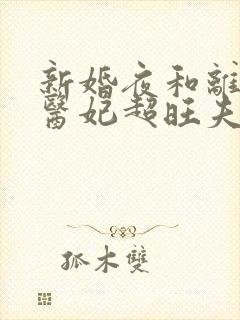 新婚夜和離
醫妃超旺夫
孤木雙